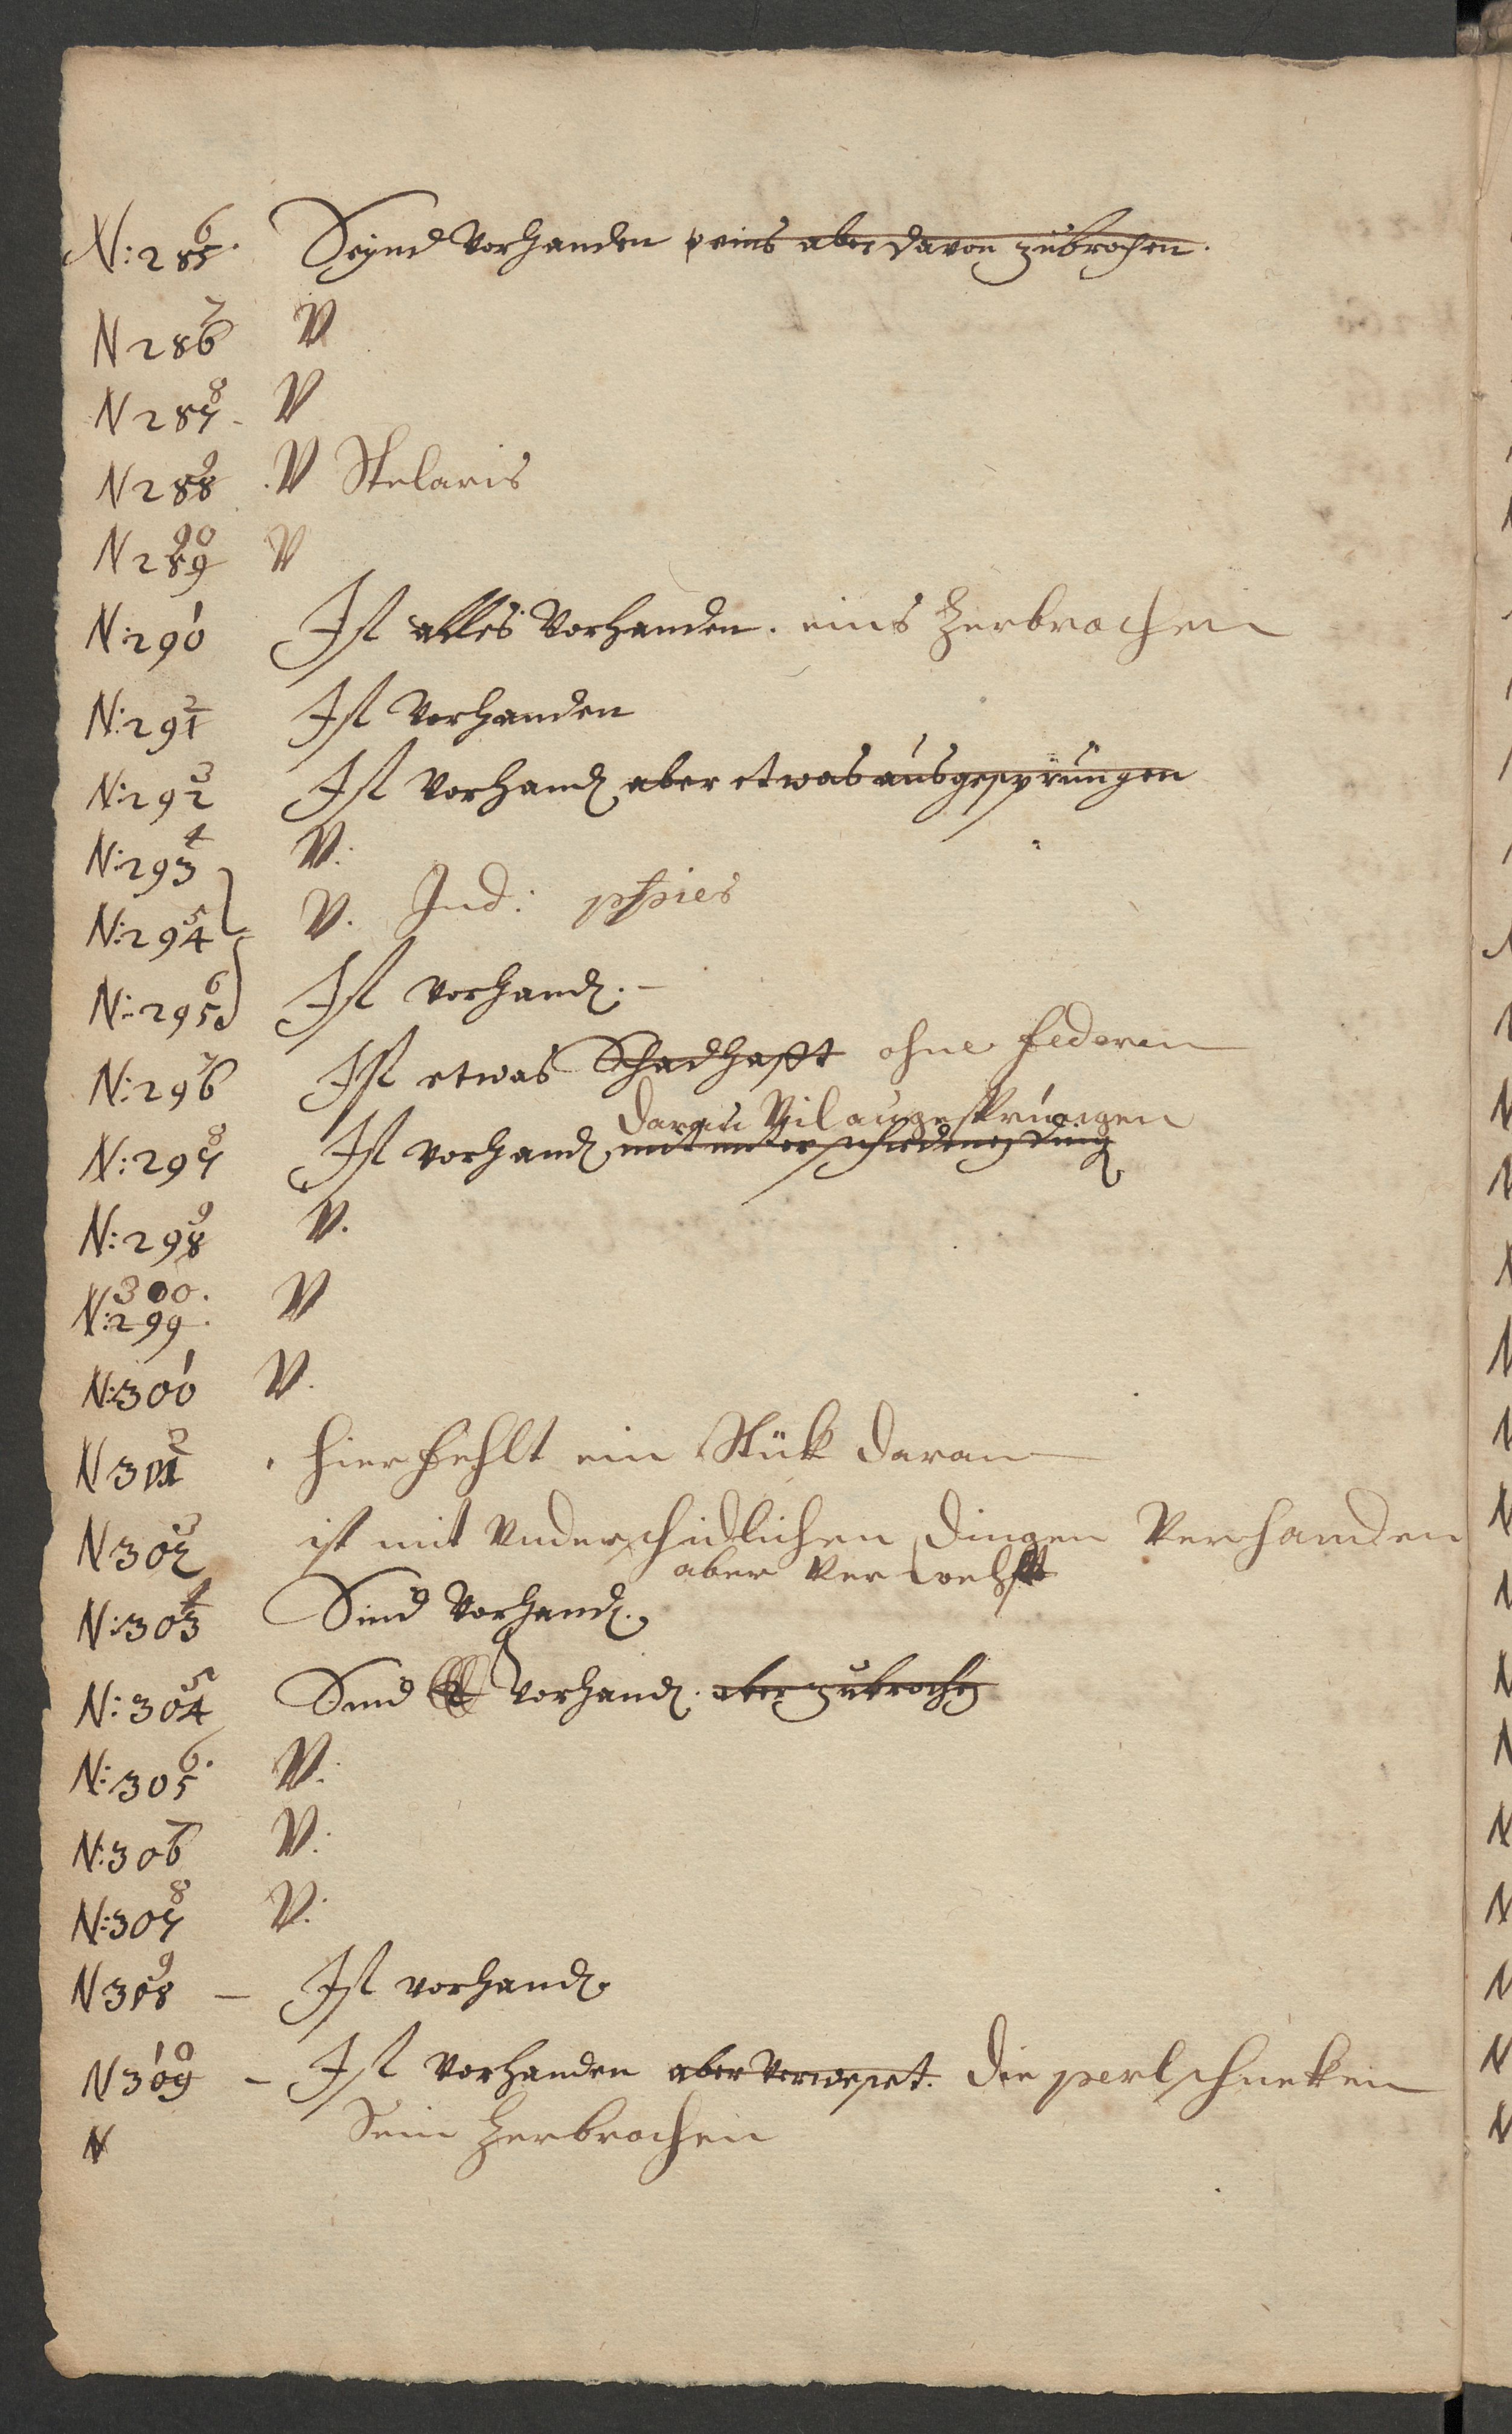 N: 285 6. Seynd Vorhanden eins aber davon zubrochen.
N 286 7 V
N 287 8 - V
N 288 9 . V Stelaris
N 289 90 V
N: 290 1 Ist alles Vorhanden. eins Zerbrochen
N: 291 2 Ist Vorhanden
N: 292 3 Ist Vorhand aber etwas ausgesprungen
N: 293 4 V.
N: 294 5 V. Ind:
N: 295 6 Ist vorhand. -
N: 296 7 Ist etwas Schadhafft ohne federen
daran Vil
N: 297 8 Ist vorhand mit unterschiedenen ding
N: 298 9 V.
300.
N: 299. V
N: 300 1 V.
N 301 2 . hier fehlt ein Stük daran
N 302 3 ist mit Vnderschidlichen dingen Verhanden
aber
N: 303 4 Sind Vorhand.
N: 304 5 Sind Vorhand. aber zubrochen
N: 305 6. V.
N: 306 7 V.
N: 307 8 V.
N 308 9 - Ist vorhand.
N 309 10 - Ist Vorhanden aber Verweset. die perlschneken
N Sein Zerbrochen